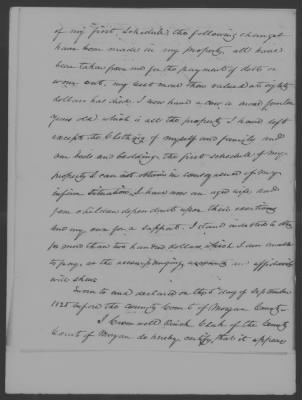 of my first schedule the following changes
have been made in my property all have
been taken from me for the payment of debts or
worn out, my best mare then valued at eighty
dollars has died. I now have a cow a mare fourteen
years old which is all the property I have left
except the Clothing of myself and family and
our beds and bedding. the first schedule of my
property I can not obtain in consequence of my
infirm situation. I have now an aged wife and
four children dependant upon their exertions
and my own for a support. I stand indebted to others
for more than two hundred dollars which I am unable
to pay, as the accompanying affidavits
will shew.
Sworn to and declared on this day of September
1825 before the county Court of Morgan County.
I Clerk of the County
Court of Morgan do hereby certify, that it appears